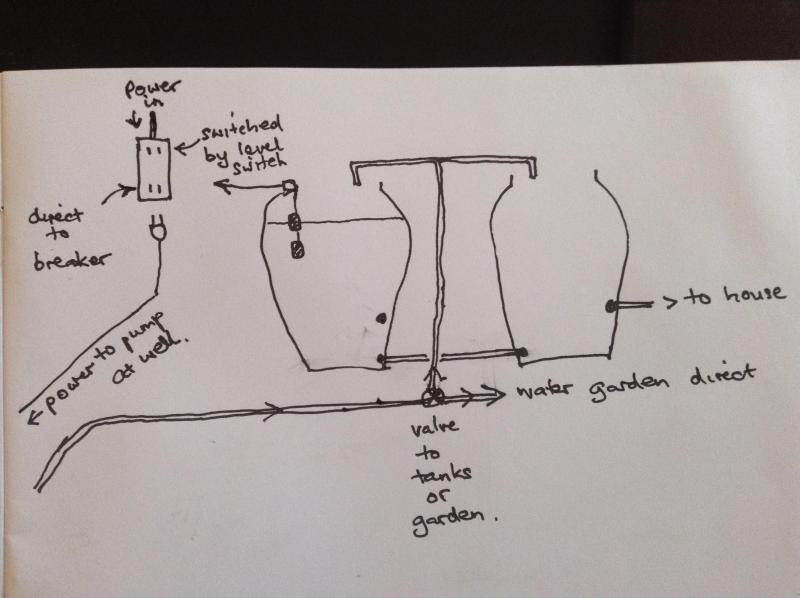 Power
in
switched
by level
switch
direct
to
breaker
power to pump
at well.
> to house
water garden direct
valve
to
tanks
or
garden.